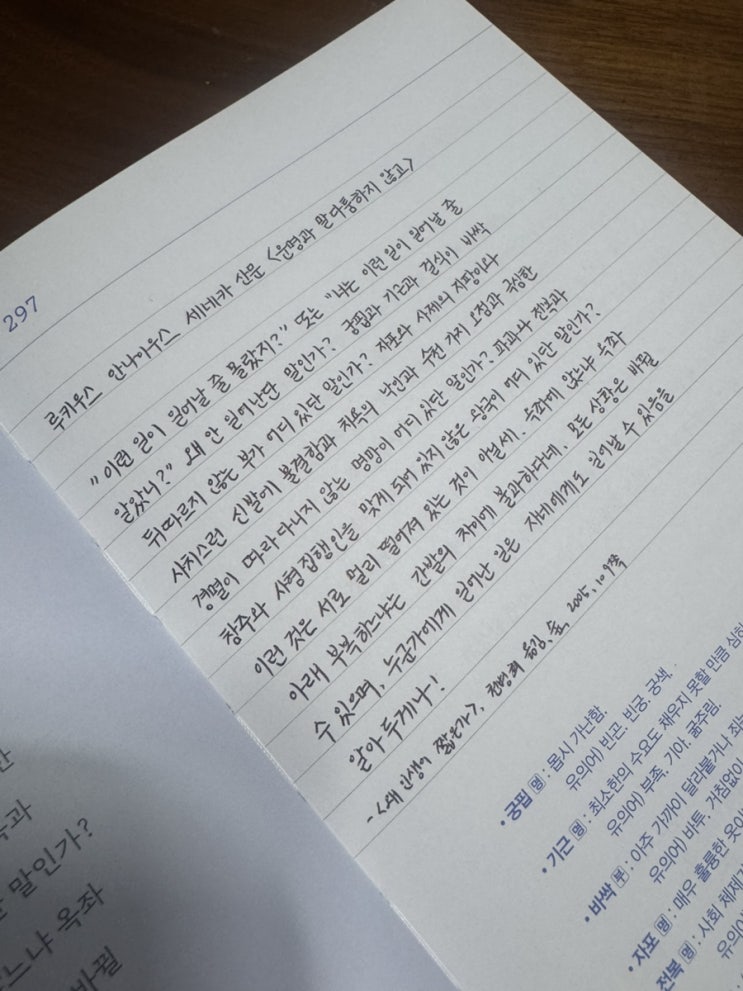 297
루키우스 안나이우스 세네카 산문 <운명과 말다툼하지 않고>
"이런 일이 일어날 줄 몰랐지?" 또는 "너는 이런 일이 일어날 줄
알았니?" 왜 안 일어난단 말인가? 궁핍과 기근과 걸식이 바싹
뒤따르지 않는 부가 어디 있단 말인가? 자포와 사제의 지팡이와
사치스런 신발에 불결함과 치욕의 낙인과 수천 가지 오점과 극심한
경멸이 따라다니지 않는 명망이 어디 있단 말인가? 파괴나 전복과
참주와 사형 집행인을 맞게 되어 있지 않은 왕국이 어디 있단 말인가?
이런 것은 서로 멀리 떨어져 있는 것이 아닐세. 옥좌에 앉느냐 옥좌
아래 부복하느냐는 간발의 차이에 불과하다네. 모든 상황은 바뀔
수 있으며, 누군가에게 일어난 일은 자네에게도 일어날 수 있음을
알아 두게나!
-<왜 인생이 짧은가>, 천병희 옮김, 숲, 2005, 109쪽
• 궁핍 명 : 몹시 가난함.
유의어) 빈곤, 빈궁, 궁색.
• 기근 명 : 최소한의 수요도 채우지 못할 만큼 심한
유의어) 부족, 기아, 굶주림.
• 바싹 부 : 아주 가까이 달라붙거나
유의어) 바투, 거침없이
• 자포 명 : 매우 훌륭한 옷
전복 명 : 사회 체제가
유의어)
말인가?
느냐 옥좌
바뀔